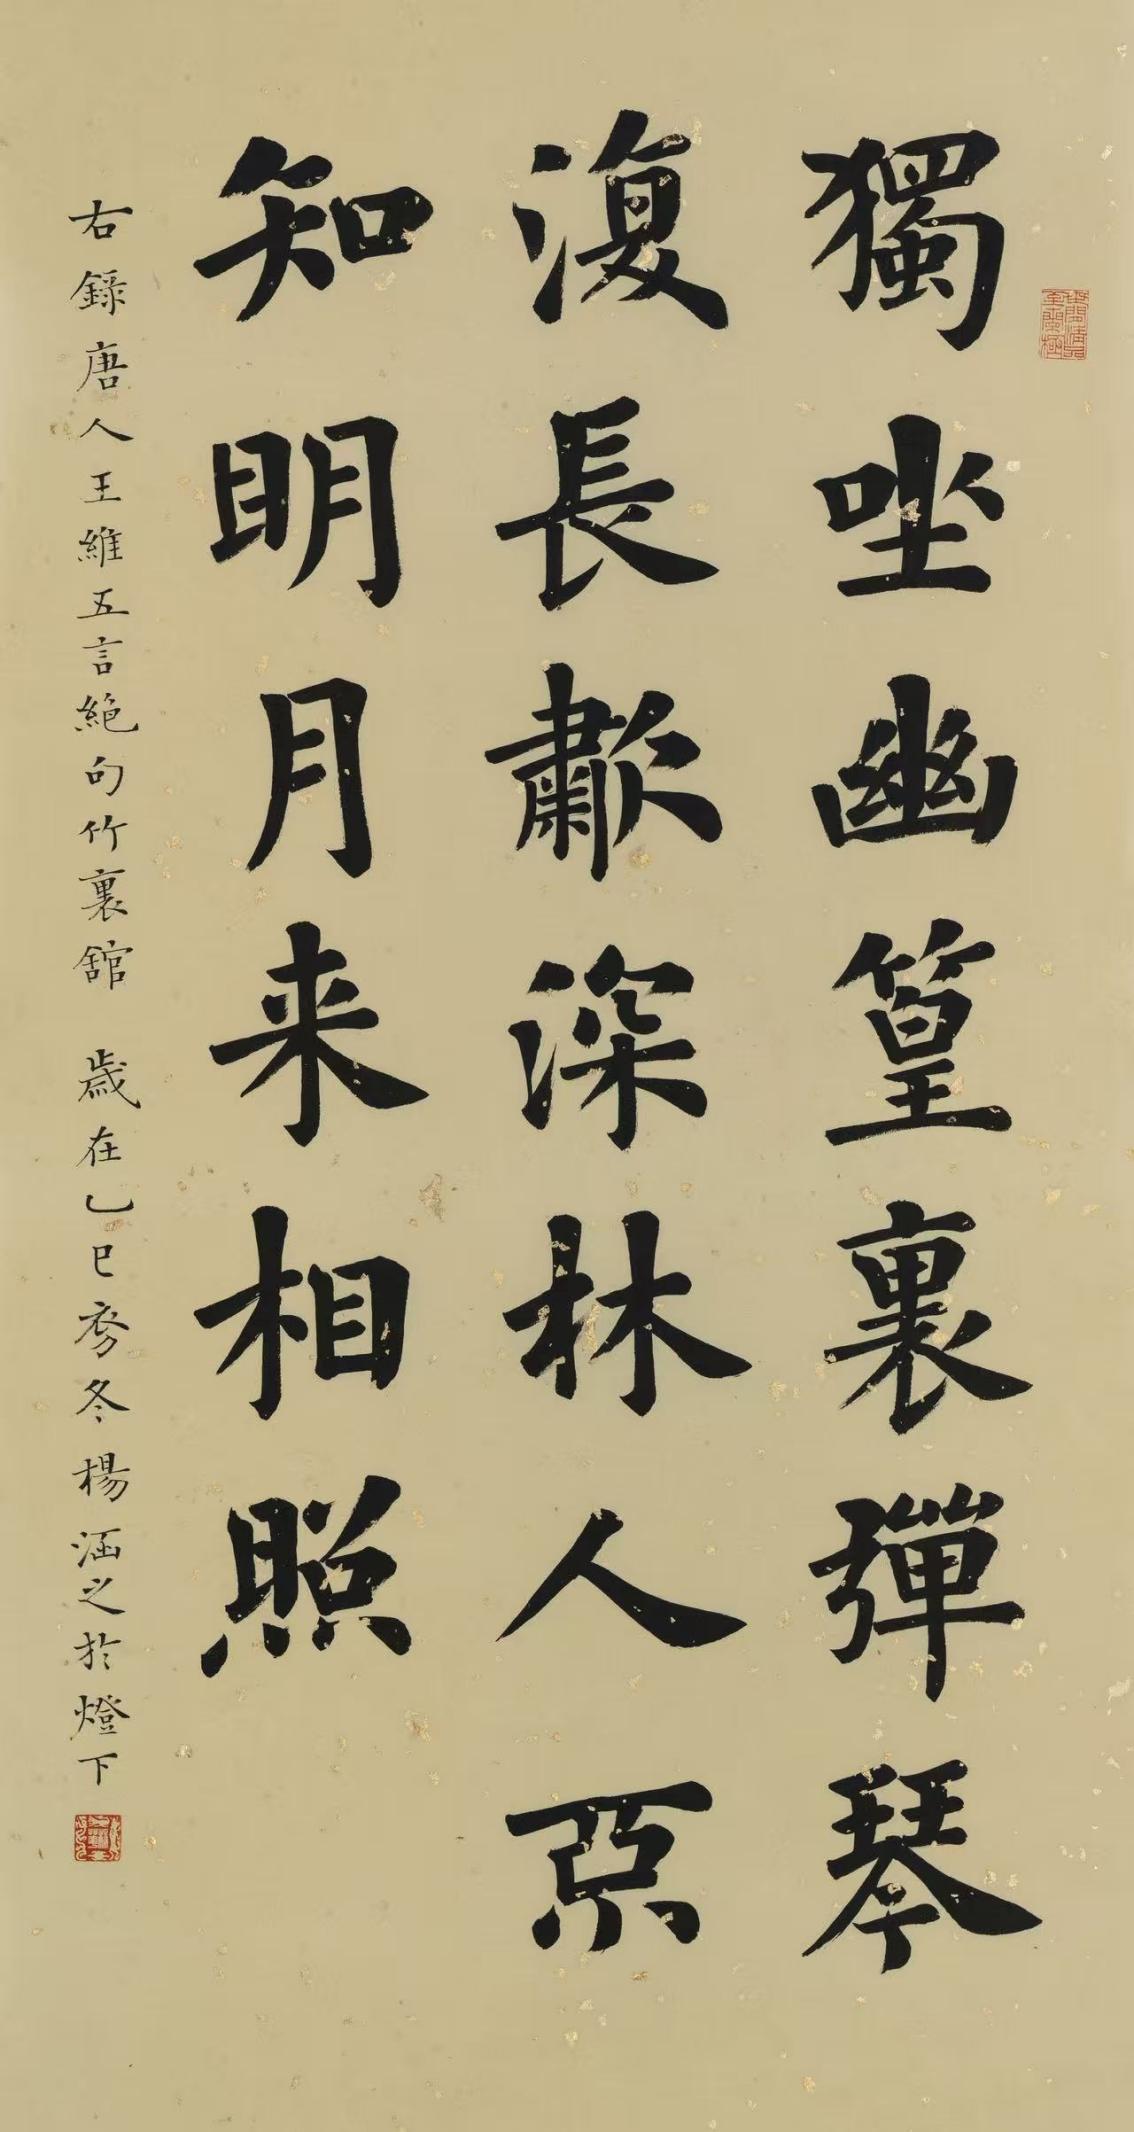 世間清品至蘭極
獨坐幽篁裏彈琴
復長歗深林人不
知明月来相照
右錄唐人王維五言絕句竹裏舘 歲在乙巳冬楊涵之於燈下